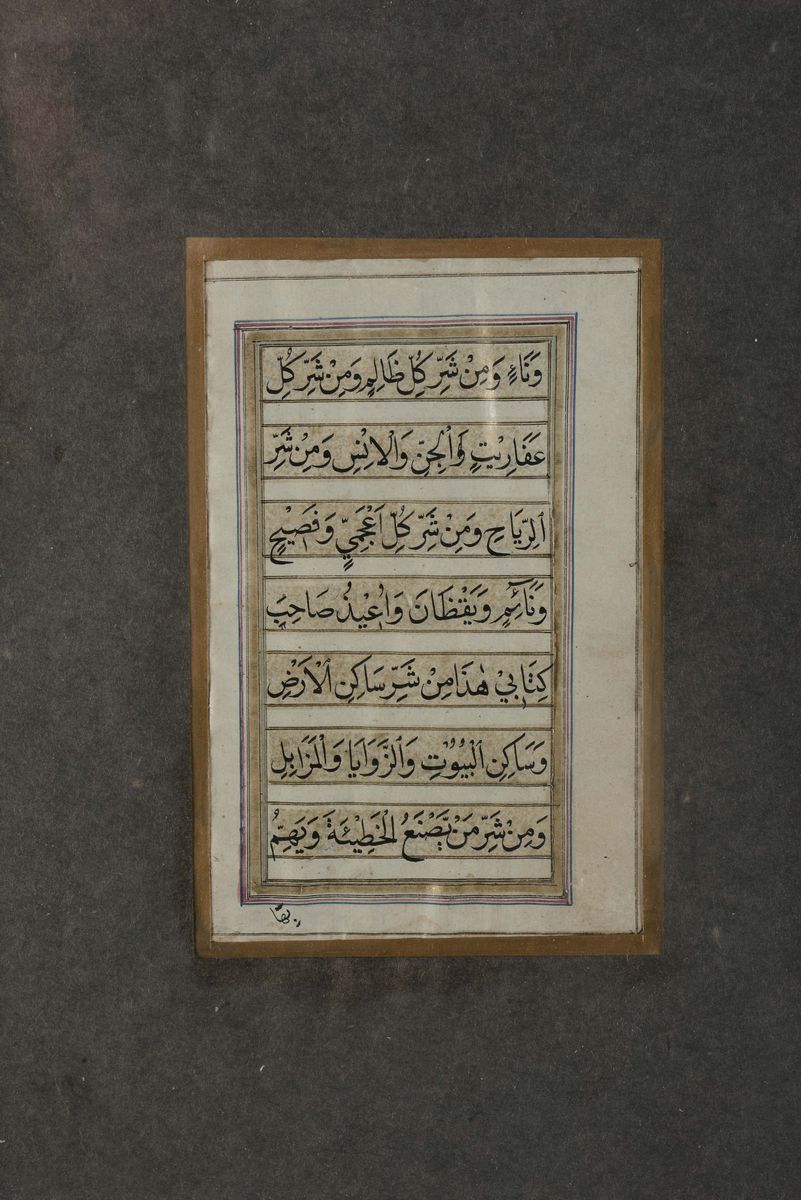 وَنَاءٍ وَمِنْ شَرِّ كُلِّ ظَالِمٍ وَمِنْ شَرِّ كُلِّ
عَفَارِيْتٍ وَٱلْجِنِّ وَالْاِنْسِ وَمِنْ شَرِّ
ٱلرِّيَاحِ وَمِنْ شَرِّ كُلِّ اَعْجَمِيٍّ وَفَصِيْحٍ
وَنَآئِمٍ وَيَقْظَانَ وَاُعِيْذُ صَاحِبَ
كِتَابِيْ هٰذَا مِنْ شَرِّ سَاكِنِ ٱلْاَرْضِ
وَسَاكِنِ ٱلْبُيُوْتِ وَٱلزَّوَايَا وَالْمَزَابِلِ
وَمِنْ شَرِّ مَنْ يَّصْنَعُ الْخَطِيْئَةَ وَيَهِمُّ
بِهَا